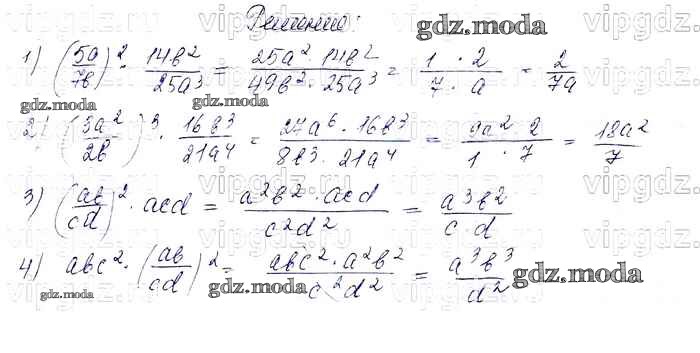 Решение:
gdz.moda
1) (5a/7b)² · 14b²/25a³ = 25a² · 14b²/49b² · 25a³ = 1 · 2/7 · a = 2/7a
gdz.moda gdz.moda
2) (3a²/2b)³ · 16b³/21a⁴ = 27a⁶ · 16b³/8b³ · 21a⁴ = 9a² · 2/1 · 7 = 18a²/7
vipgdz vipgdz vipgdz vipgdz
3) (ab/cd)² · acd = a²b² · acd/c²d² = a³b²/c d
4) abc² · (ab/cd)² = abc² · a²b²/c²d² = a³b³/d²
gdz.moda gdz.moda gdz.moda